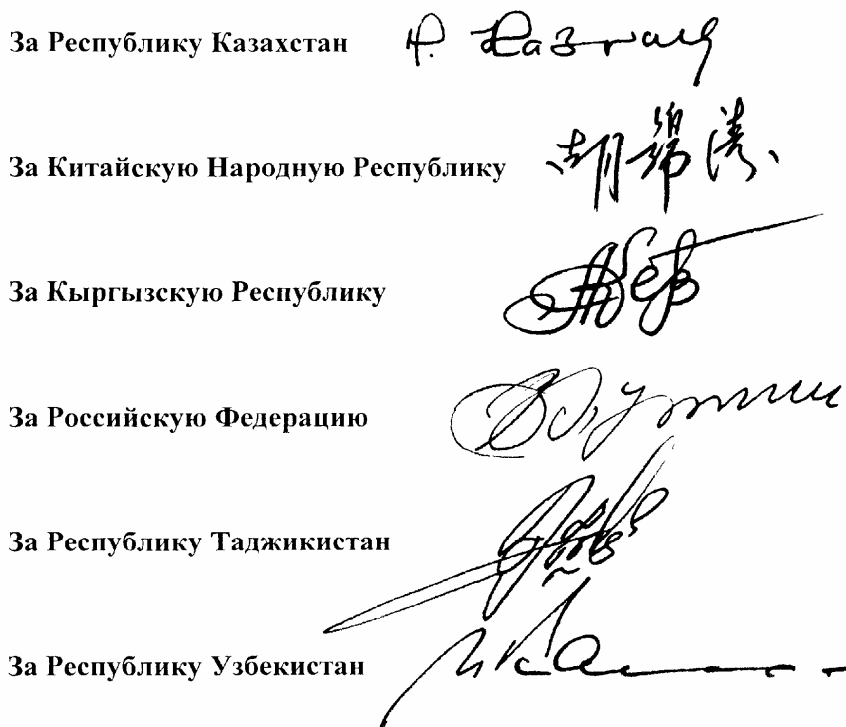 За Республику Казахстан
За Китайскую Народную Республику 胡锦涛
За Кыргызскую Республику
За Российскую Федерацию
За Республику Таджикистан
За Республику Узбекистан